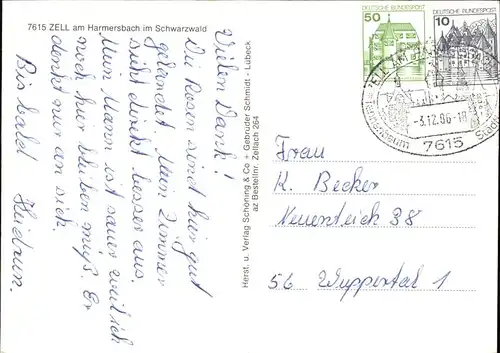 7615 ZELL am Harmersbach im Schwarzwald
Vielen Dank!
Die Rosen sind hier gut
gelandet. Mein Zimmer
sieht direkt besser aus.
Mein Mann ist sauer weil ich
noch hier bleiben muß. Er
denkt nur an sich.
Bis bald Heidrun.
Herst. u. Verlag Schöning & Co + Gebrüder Schmidt - Lübeck
az Bestellnr. Zellach 264
DEUTSCHE BUNDESPOST
50
DEUTSCHE BUNDESPOST
10
ZELL AM
-3.12.86-18
7615
Frau
K. Becker
Neuenteich 38
56 Wuppertal 1